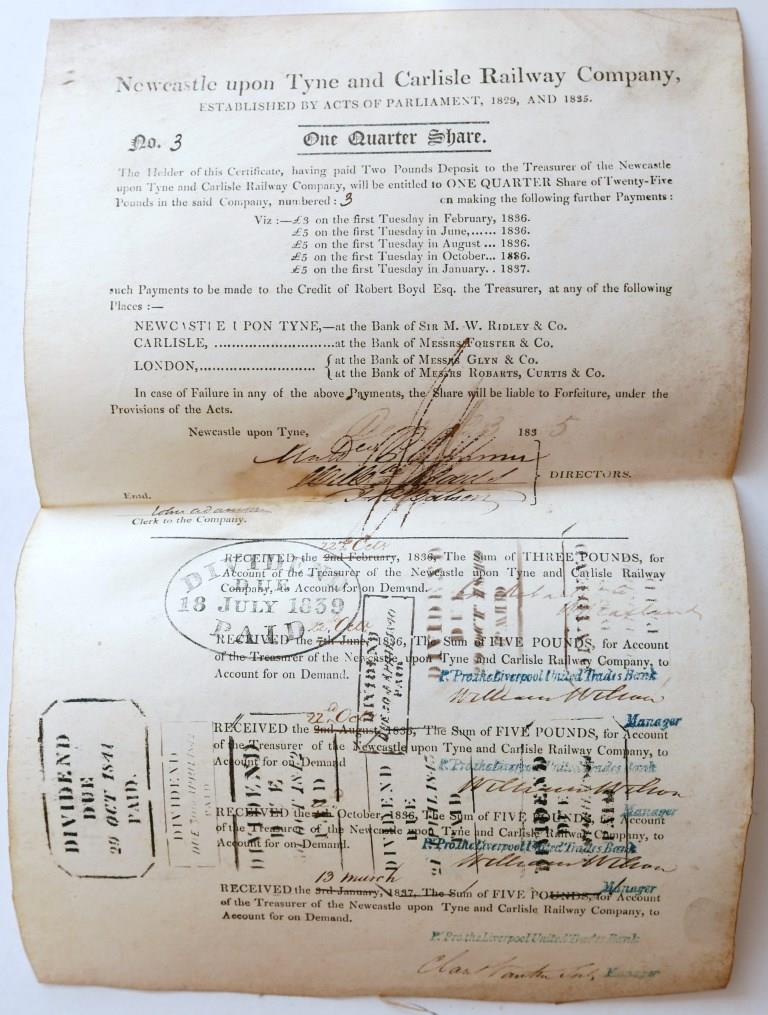 Newcastle upon Tyne and Carlisle Railway Company,
ESTABLISHED BY ACTS OF PARLIAMENT, 1829, AND 1835.
No. 3 One Quarter Share.
The Holder of this Certificate, having paid Two Pounds Deposit to the Treasurer of the Newcastle
upon Tyne and Carlisle Railway Company, will be entitled to ONE QUARTER Share of Twenty-Five
Pounds in the said Company, numbered : 3 on making the following further Payments :
Viz :—£3 on the first Tuesday in February, 1836.
£5 on the first Tuesday in June,...... 1836.
£5 on the first Tuesday in August ... 1836.
£5 on the first Tuesday in October... 1836.
£5 on the first Tuesday in January.. 1837.
such Payments to be made to the Credit of Robert Boyd Esq. the Treasurer, at any of the following
Places :—
NEWCASTLE UPON TYNE,—at the Bank of SIR M. W. RIDLEY & Co.
CARLISLE, .............................at the Bank of MESSRS FORSTER & Co.
LONDON,............................ { at the Bank of MESSRS GLYN & Co.
at the Bank of MESSRS ROBARTS, CURTIS & Co.
In case of Failure in any of the above Payments, the Share will be liable to Forfeiture, under the
Provisions of the Acts.
Newcastle upon Tyne, 1835
DIRECTORS.
Entd.
John Adamson
Clerk to the Company.
22nd Octr
RECEIVED the 2nd February, 1836, The Sum of THREE POUNDS, for
Account of the Treasurer of the Newcastle upon Tyne and Carlisle Railway
Company, to Account for on Demand.
DIVIDEND
DUE
18 JULY 1839
PAID
RECEIVED the 7th June, 1836, The Sum of FIVE POUNDS, for Account
of the Treasurer of the Newcastle upon Tyne and Carlisle Railway Company, to
Account for on Demand.
P. Pro. the Liverpool United Trades Bank
William Wilson
Manager
22nd Octr
RECEIVED the 2nd August, 1836, The Sum of FIVE POUNDS, for Account
of the Treasurer of the Newcastle upon Tyne and Carlisle Railway Company, to
Account for on Demand
P. Pro. the Liverpool United Trades Bank
William Wilson
Manager
RECEIVED the October, 1836, The Sum of FIVE POUNDS, for Account
of the Treasurer of the Newcastle upon Tyne and Carlisle Railway Company, to
Account for on Demand.
P. Pro. the Liverpool United Trades Bank
William Wilson
Manager
13 march
RECEIVED the 3rd January, 1837, The Sum of FIVE POUNDS, for Account
of the Treasurer of the Newcastle upon Tyne and Carlisle Railway Company, to
Account for on Demand.
P. Pro. the Liverpool United Trades Bank
Manager
DIVIDEND
DUE
29 OCT 1841
PAID.
DIVIDEND
PAID
DIVIDEND
DUE
OCT 1842
DIVIDEND
DUE
PAID
DIVIDEND
DUE
DIVIDEND
PAID
DIVIDEND
DUE
OCT 1840
PAID